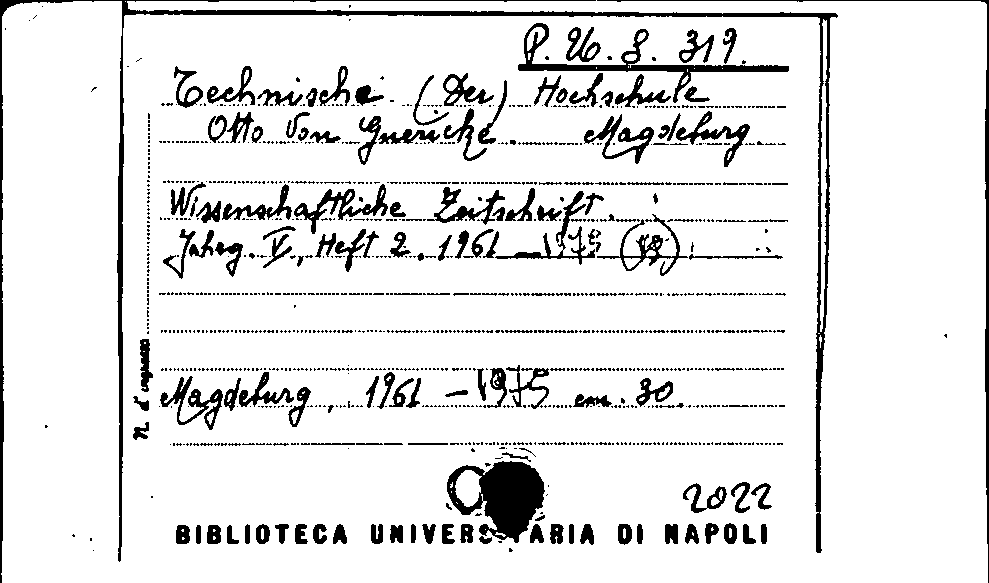 P. U. S. 319.
Technische (Der) Hochschule
Otto Von Guericke. Magdeburg.
Wissenschaftliche Zeitschrift.
Jahrg. V, Heft 2. 1961 – 1975
Magdeburg, 1961 – 1975 cm. 30.
N. d'ingresso
2022
BIBLIOTECA UNIVERSITARIA DI NAPOLI